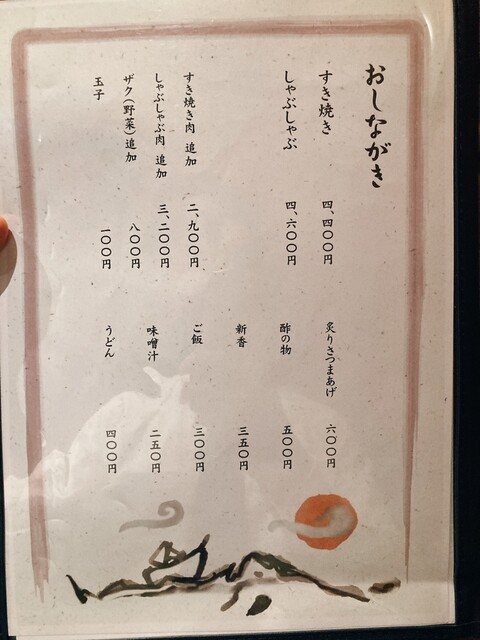 おしながき
すき焼き 四、四〇〇円
しゃぶしゃぶ 四、六〇〇円
すき焼き肉 追加 二、九〇〇円
しゃぶしゃぶ肉 追加 三、二〇〇円
ザク(野菜)追加 八〇〇円
玉子 一〇〇円
炙りさつまあげ 六〇〇円
酢の物 五〇〇円
新香 三五〇円
ご飯 三〇〇円
味噌汁 二五〇円
うどん 四〇〇円